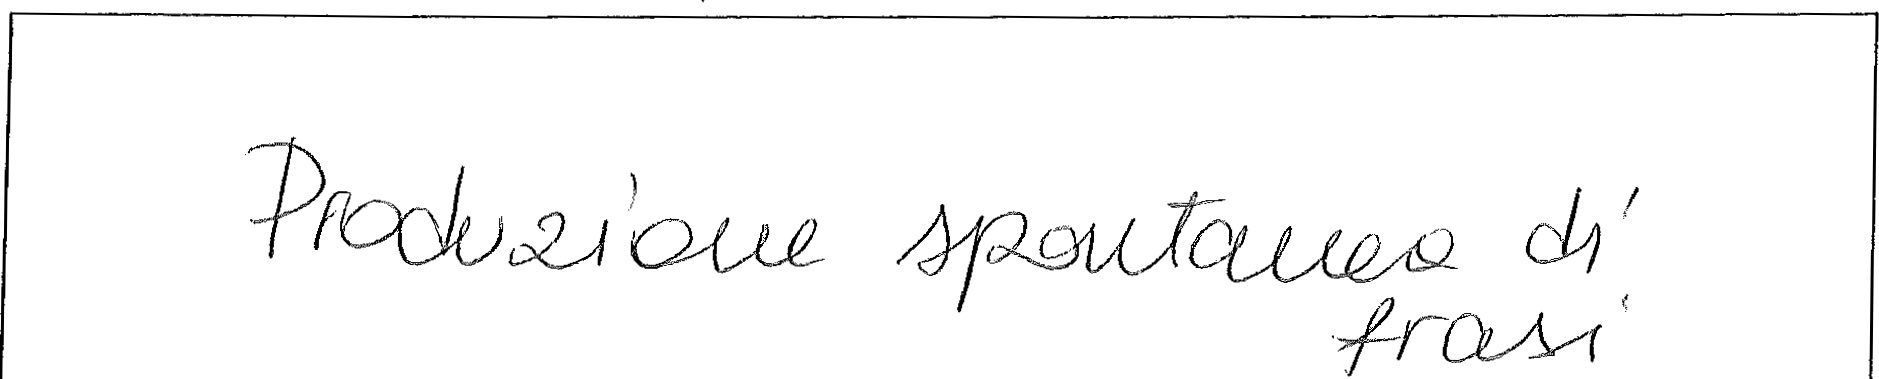 Produzione spontanea di
frasi